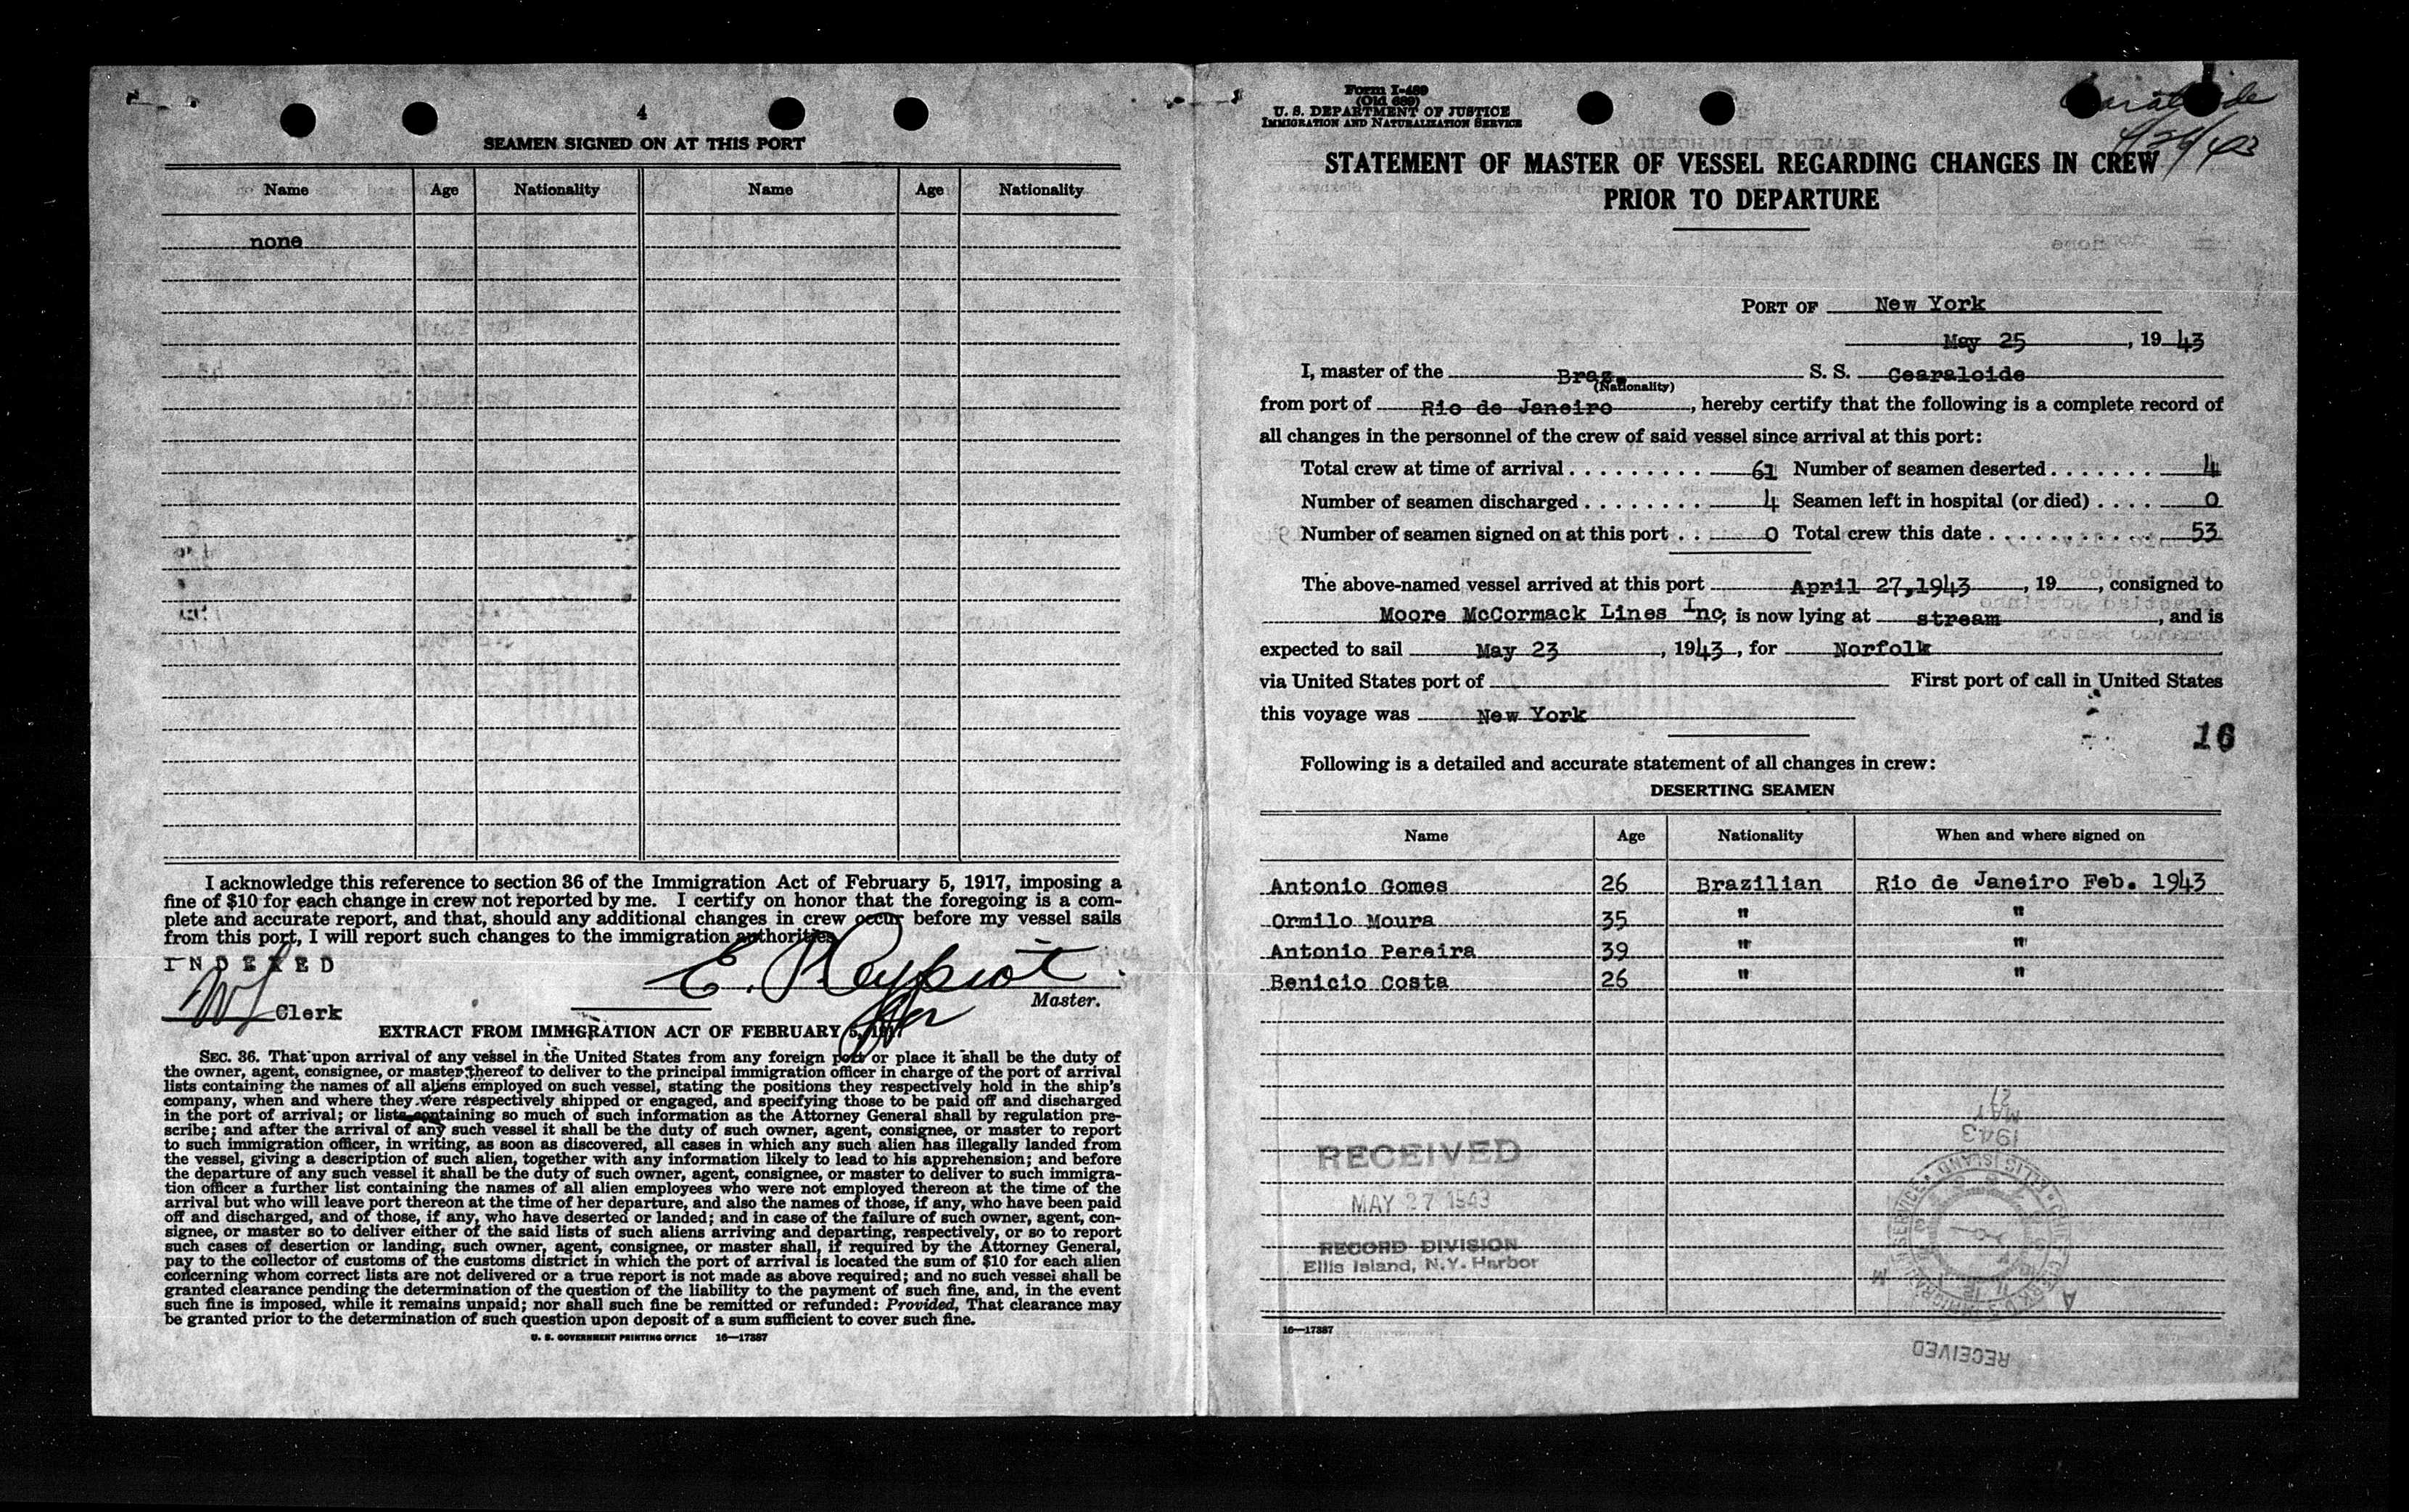 4
SEAMEN SIGNED ON AT THIS PORT
Name Age Nationality Name Age Nationality
none
I acknowledge this reference to section 36 of the Immigration Act of February 5, 1917, imposing a
fine of $10 for each change in crew not reported by me. I certify on honor that the foregoing is a com-
plete and accurate report, and that, should any additional changes in crew occur before my vessel sails
from this port, I will report such changes to the immigration authorities.
INDEXED
E.
Master.
Clerk
EXTRACT FROM IMMIGRATION ACT OF FEBRUARY 5, 1917
SEC. 36. That upon arrival of any vessel in the United States from any foreign port or place it shall be the duty of
the owner, agent, consignee, or master thereof to deliver to the principal immigration officer in charge of the port of arrival
lists containing the names of all aliens employed on such vessel, stating the positions they respectively hold in the ship's
company, when and where they were respectively shipped or engaged, and specifying those to be paid off and discharged
in the port of arrival; or lists containing so much of such information as the Attorney General shall by regulation pre-
scribe; and after the arrival of any such vessel it shall be the duty of such owner, agent, consignee, or master to report
to such immigration officer, in writing, as soon as discovered, all cases in which any such alien has illegally landed from
the vessel, giving a description of such alien, together with any information likely to lead to his apprehension; and before
the departure of any such vessel it shall be the duty of such owner, agent, consignee, or master to deliver to such immigra-
tion officer a further list containing the names of all alien employees who were not employed thereon at the time of the
arrival but who will leave port thereon at the time of her departure, and also the names of those, if any, who have been paid
off and discharged, and of those, if any, who have deserted or landed; and in case of the failure of such owner, agent, con-
signee, or master so to deliver either of the said lists of such aliens arriving and departing, respectively, or so to report
such cases of desertion or landing, such owner, agent, consignee, or master shall, if required by the Attorney General,
pay to the collector of customs of the customs district in which the port of arrival is located the sum of $10 for each alien
concerning whom correct lists are not delivered or a true report is not made as above required; and no such vessel shall be
granted clearance pending the determination of the question of the liability to the payment of such fine, and, in the event
such fine is imposed, while it remains unpaid; nor shall such fine be remitted or refunded: Provided, That clearance may
be granted prior to the determination of such question upon deposit of a sum sufficient to cover such fine.
U. S. GOVERNMENT PRINTING OFFICE 16—17387
Form I-489
(Old 689)
U. S. DEPARTMENT OF JUSTICE
IMMIGRATION AND NATURALIZATION SERVICE
STATEMENT OF MASTER OF VESSEL REGARDING CHANGES IN CREW
PRIOR TO DEPARTURE
PORT OF New York
May 25, 1943
I, master of the Braz. S. S. Cearaloide
(Nationality)
from port of Rio de Janeiro, hereby certify that the following is a complete record of
all changes in the personnel of the crew of said vessel since arrival at this port:
Total crew at time of arrival 61 Number of seamen deserted 4
Number of seamen discharged 4 Seamen left in hospital (or died) 0
Number of seamen signed on at this port 0 Total crew this date 53
The above-named vessel arrived at this port April 27, 1943, 19, consigned to
Moore McCormack Lines Inc, is now lying at stream, and is
expected to sail May 23, 1943, for Norfolk
via United States port of First port of call in United States
this voyage was New York
16
Following is a detailed and accurate statement of all changes in crew:
DESERTING SEAMEN
Name Age Nationality When and where signed on
Antonio Gomes 26 Brazilian Rio de Janeiro Feb. 1943
Ormilo Moura 35 " "
Antonio Pereira 39 " "
Benicio Costa 26 " "
RECEIVED
MAY 27 1943
RECORD DIVISION
Ellis Island, N.Y. Harbor
MAY
27
1943
RECEIVED
16—17387